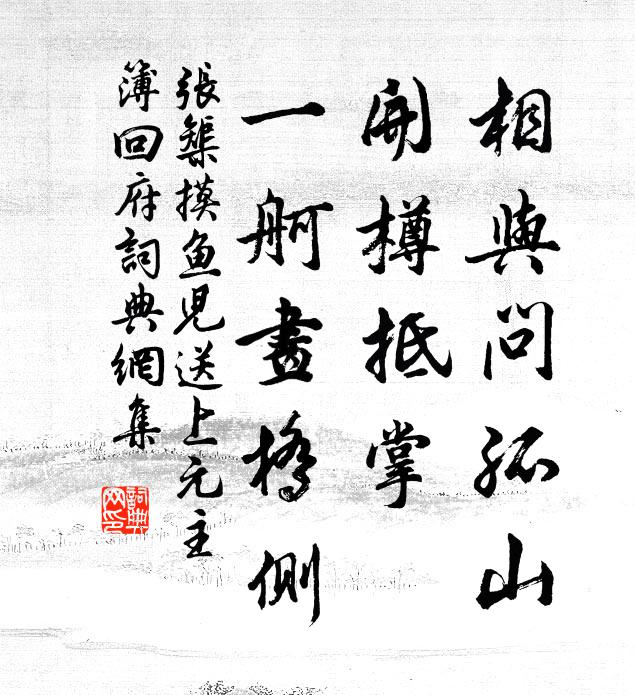 相與問孤山
開樽抵掌
一舸畫橋側
張榘摸魚兒送上元主
簿回府詞典網集
詞典網印